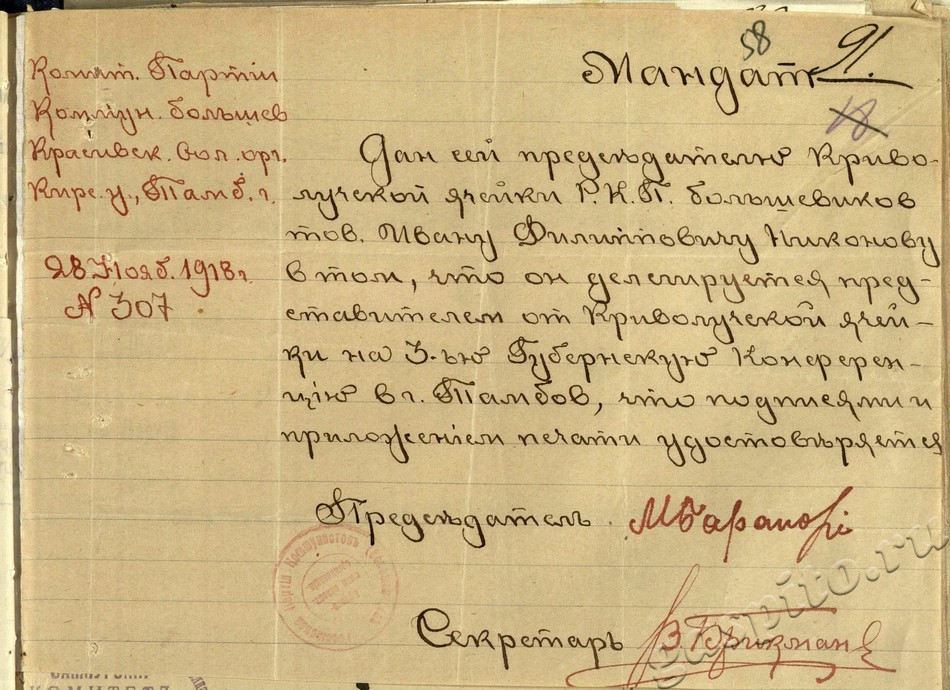 58
21.
Мандат
18
Комит. Партіи
Коммун. большев
Красивск. вол. орг.
Кирс. у., Тамб. г.
28 Нояб. 1918 г.
N 307
Дан сей председателю Криво-
лучской ячейки Р.К.П. большевиков
тов. Ивану Филипповичу Никонову
в том, что он делегируется пред-
ставителем от Криволучской ячей-
ки на 3-ью Губернскую Конферен-
цію в г. Тамбов, что подписями и
приложеніем печати удостовѣряется
Председатель. МБаранов
Секретарь В. Бризман
КОМИТЕТА